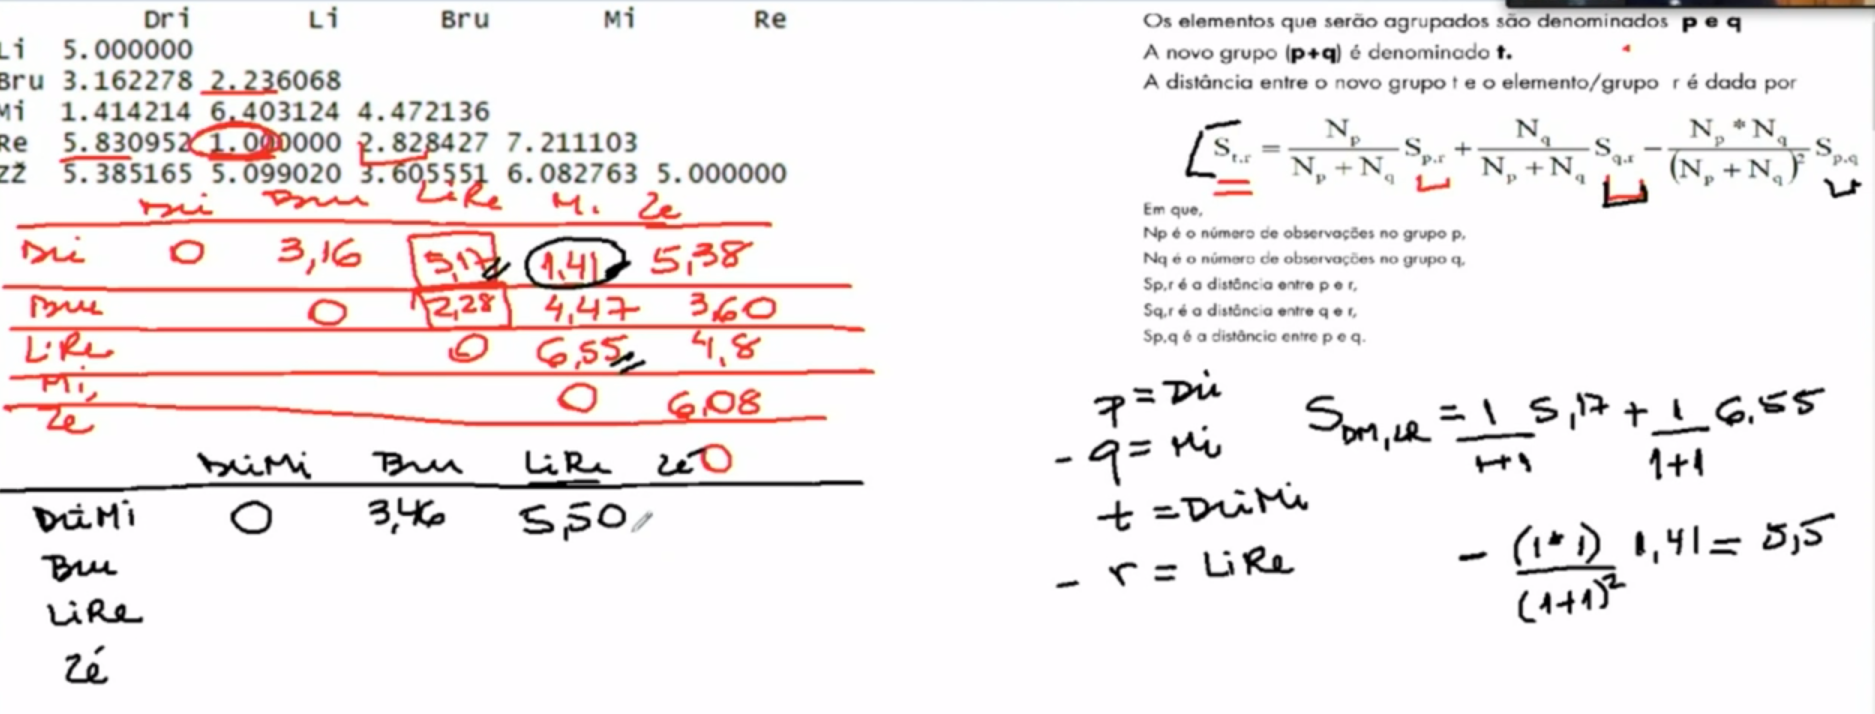 Dri Li Bru Mi Re
Li 5.000000
Bru 3.162278 2.236068
Mi 1.414214 6.403124 4.472136
Re 5.830952 1.000000 2.828427 7.211103
ZŽ 5.385165 5.099020 3.605551 6.082763 5.000000
Dri Bru LiRe Mi Zé
Dri 0 3,16 5,17 1,41 5,38
Bru 0 2,28 4,47 3,60
LiRe 0 6,55 4,8
Mi, 0 6,08
Zé 0
DriMi Bru LiRe Zé
DriMi 0 3,46 5,50
Bru
LiRe
Zé
Os elementos que serão agrupados são denominados p e q
A novo grupo (p+q) é denominado t.
A distância entre o novo grupo t e o elemento/grupo r é dada por
S t,r = Np / (Np + Nq) S p,r + Nq / (Np + Nq) S q,r − Np * Nq / (Np + Nq)² S p,q
Em que,
Np é o número de observações no grupo p,
Nq é o número de observações no grupo q,
Sp,r é a distância entre p e r,
Sq,r é a distância entre q e r,
Sp,q é a distância entre p e q.
p = Dri
- q = Mi
t = DriMi
- r = LiRe
S DM,LR = 1 / (1+1) 5,17 + 1 / (1+1) 6,55
- (1*1) / (1+1)² 1,41 = 5,5